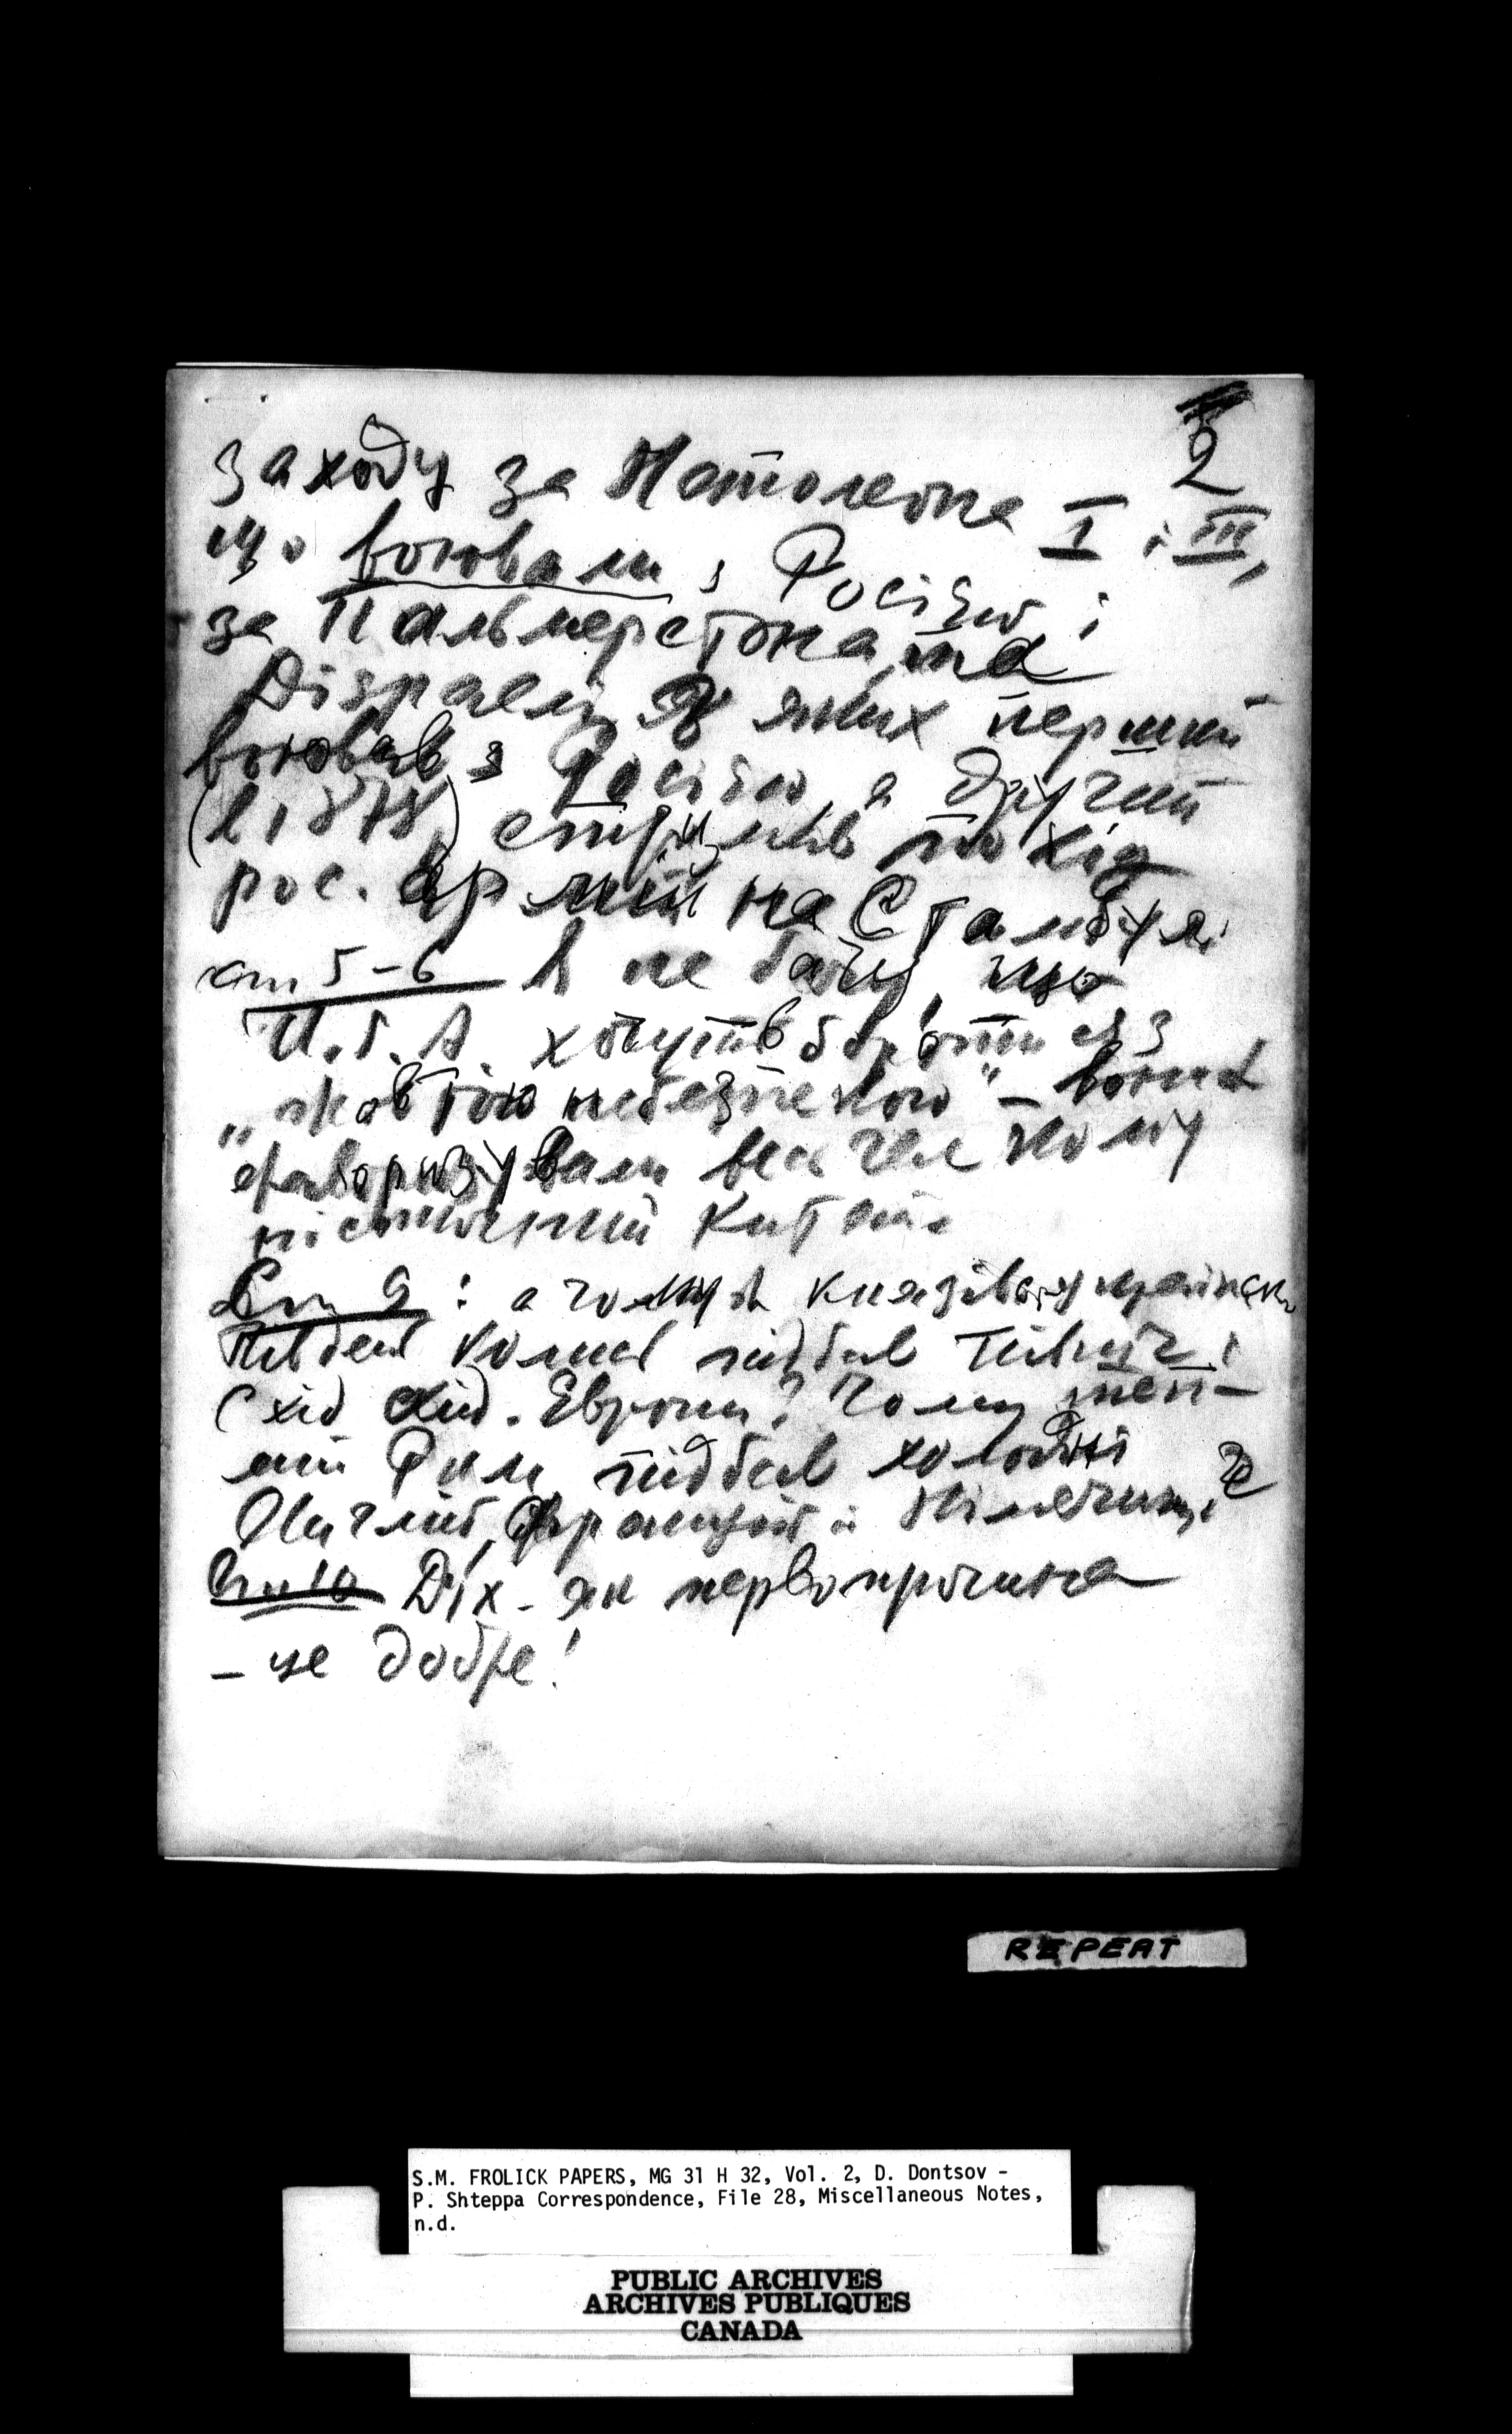 2
заходу за Наполеона I і III,
що воювали з Росією і
за Пальмерстона, та
Дізраелі, з яких перший
воював з Росією, а другий
(в 1878) спинив похід
рос. армії на Стамбул.
ст 5-6 Я не бачу, що
хочуть бороти ся з
„жовтою небезпекою" – вони
фаворизували весь час
Китай.
Ст 9: а чому князівсу українск.
Південь підбив Північ і
Схід Европи? Чому теп-
лий Рим підбив холодні
Англію, Францію і Німеччину?
Ст 10 Дух – як первопричина
– це добре!
REPEAT
S.M. FROLICK PAPERS, MG 31 H 32, Vol. 2, D. Dontsov -
P. Shteppa Correspondence, File 28, Miscellaneous Notes,
n.d.
PUBLIC ARCHIVES
ARCHIVES PUBLIQUES
CANADA